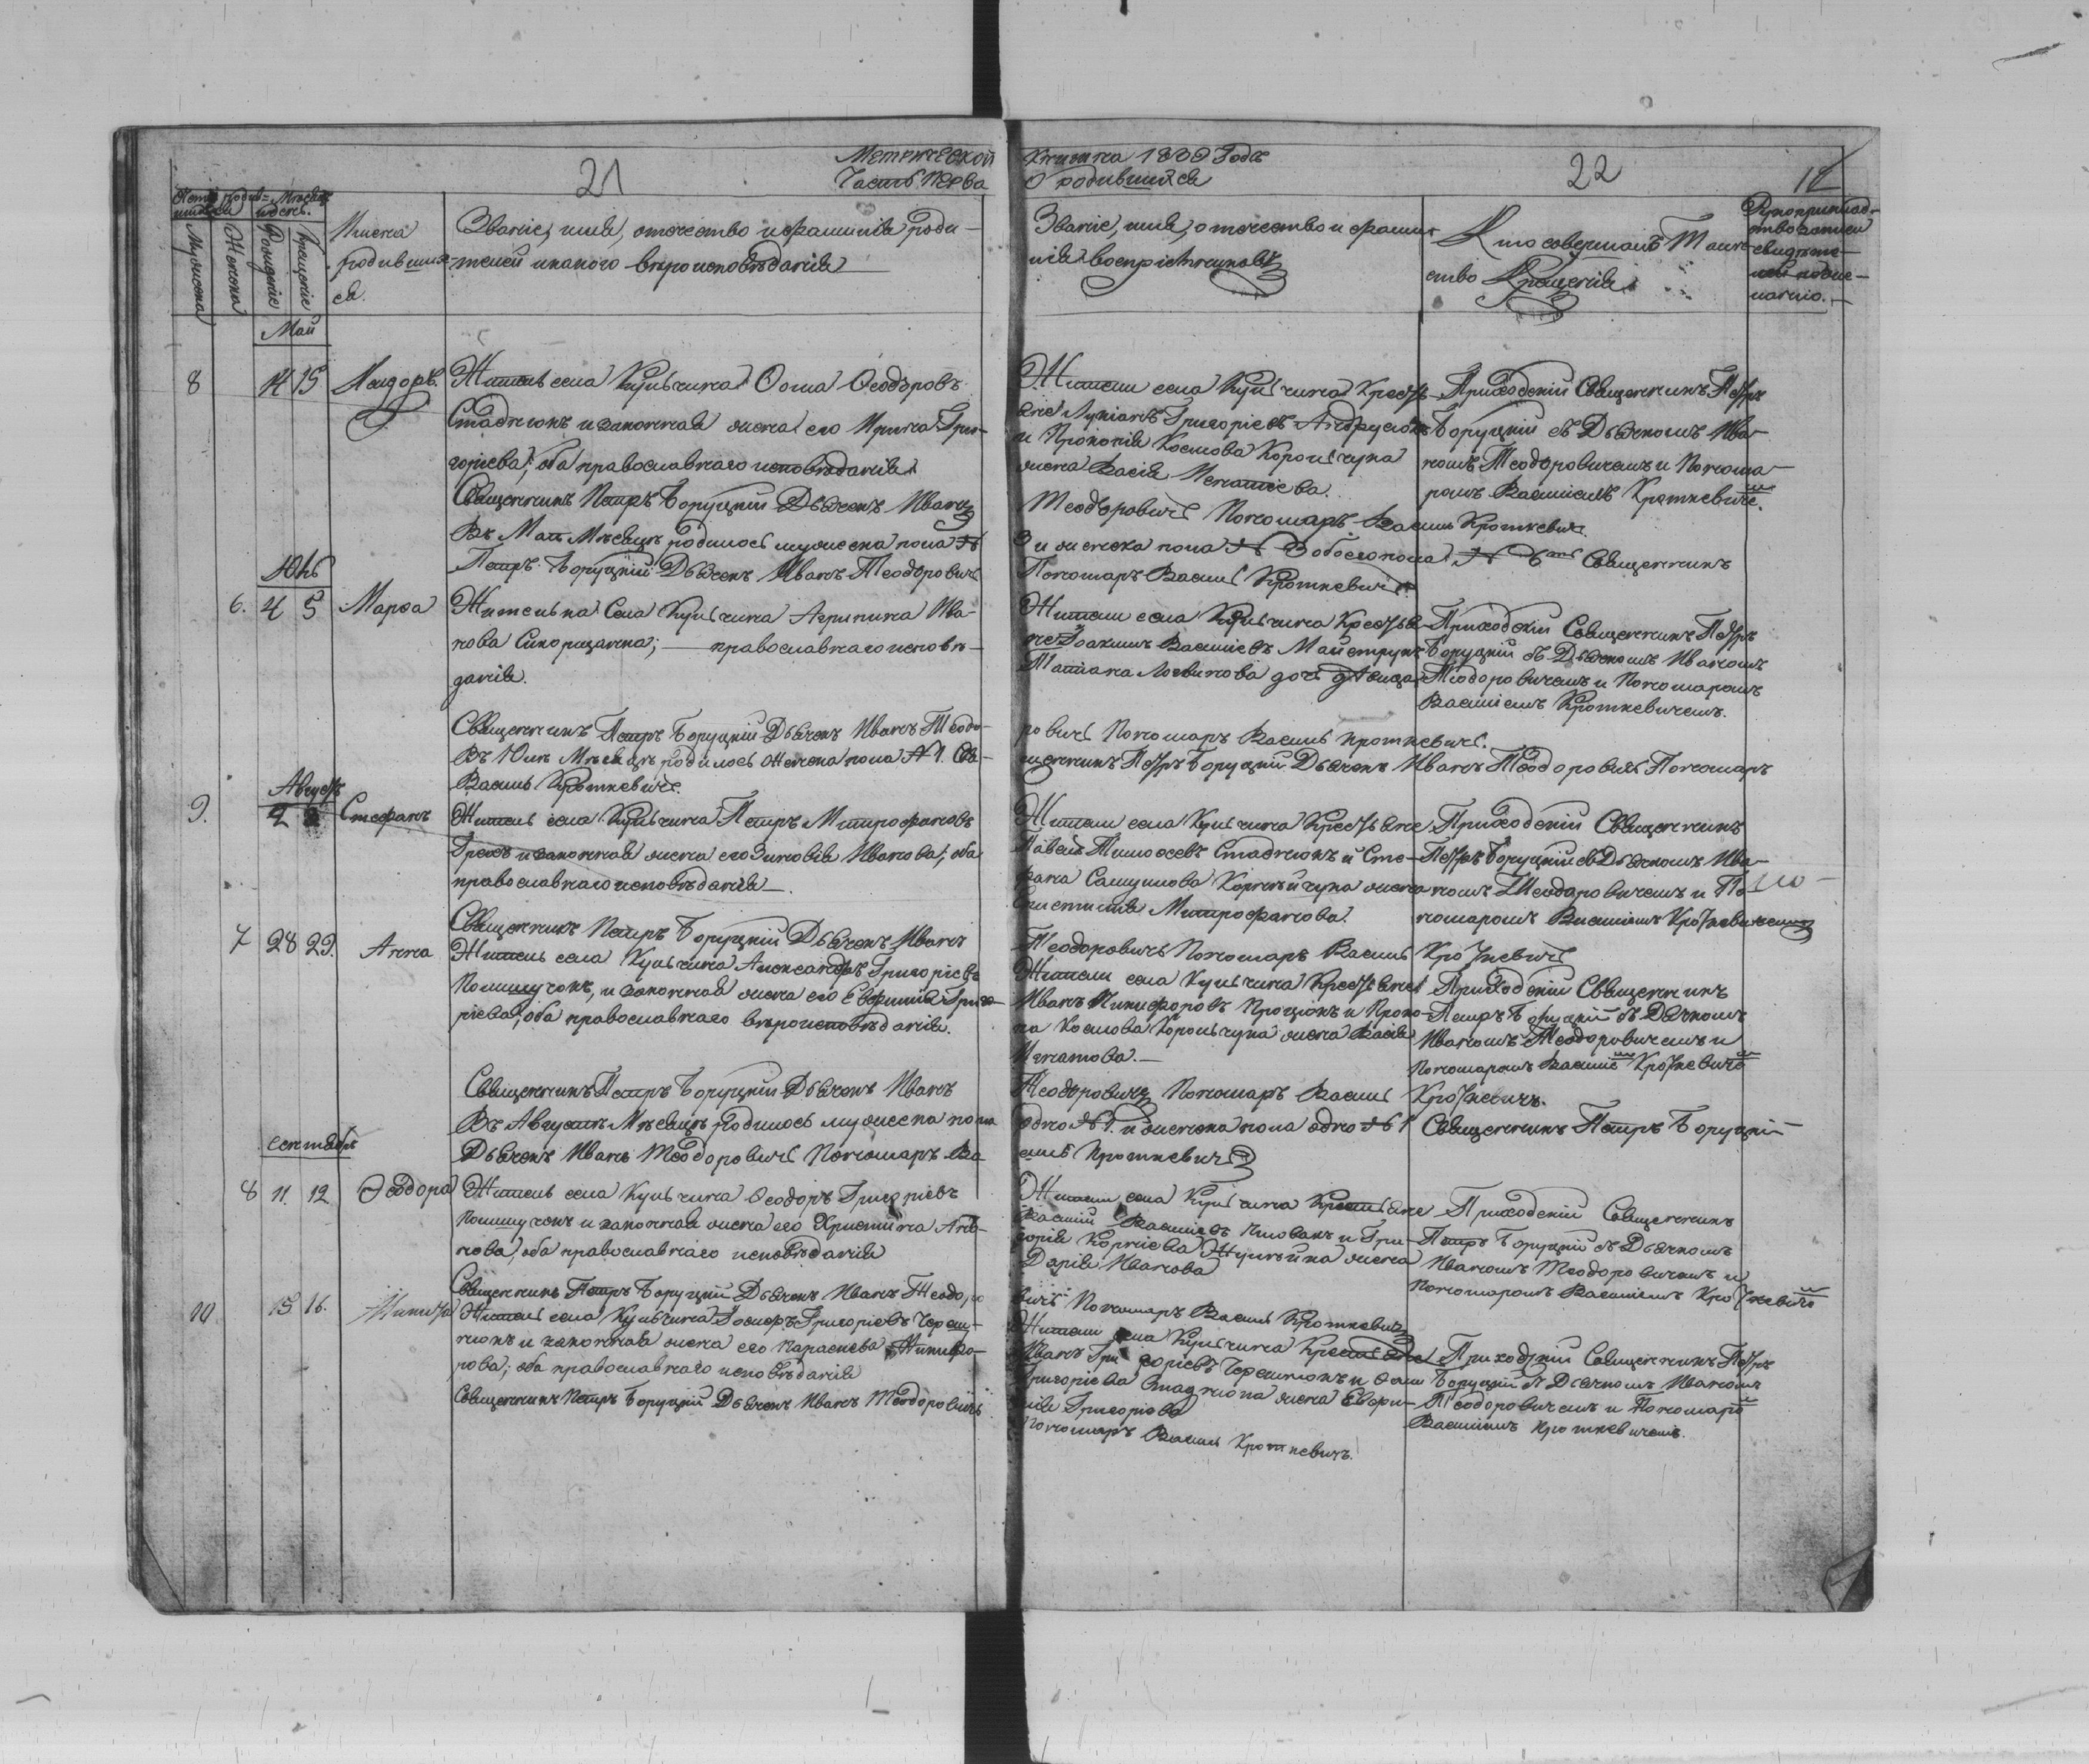 21
Метрической
Часть Перва
Книжка 1839 Года
О родившихся
22
12
Мужеска
Женска
Рождение
Крещение
Имена
родивших-
ся.
Званіе, имя, отечество и фамилія роди-
телей и какого вѣроисповѣданія
Званіе, имя, отечество и фами-
лія воспріемниковъ
Кто совершалъ Таин-
ство Крещенія
Май
8
14 15
Исидоръ.
Житель села Кульчина Ѳома Ѳеодоровъ
Стаднюкъ и законная жена его Ирина Гри-
горіева; оба православнаго исповѣданія
Священникъ Петръ Боруцкій Дьячекъ Иванъ
Въ Маѣ Мѣсяцѣ родилось мужеска пола №
Петръ Боруцкій Дьячекъ Иванъ Теодоровичъ
Жители села Кульчина Крестья-
не Лукіанъ Григоріевъ Андрусюкъ
и Прокопія Космова Корольчука
жена Васія Игнатіева.
Теодоровичъ Пономаръ Василь Кроткевичъ.
3 и женска пола № 3 обоего пола № 6 Священникъ
Пономаръ Василь Кроткевичъ
Приходскій Священникъ Петръ
Боруцкій съ Дьячкомъ Ива-
номъ Теодоровичемъ и Понома-
ромъ Василіемъ Кроткевиче.
Юль
6. 4 5
Марѳа
Жителька Села Кульчина Агрипина Ива-
нова Сикорщанка; православнаго исповѣ-
данія.
Священникъ Петръ Боруцкій Дьячекъ Иванъ Теодо-
Въ Юлѣ Мѣсяцѣ родилось женска пола № 1. Свя-
Василь Кроткевичъ.
Жители села Кульчина Крестья-
не Іоакимъ Василіевъ Майструкъ
Татіана Логвинова дочь
ровичъ Пономаръ Василь Кроткевичъ.
щенникъ Петръ Боруцкій Дьячекъ Иванъ Теодоровичъ Пономаръ
Приходскій Священникъ Петръ
Боруцкій съ Дьячкомъ Иваномъ
Теодоровичемъ и Пономаромъ
Василіемъ Кроткевичемъ.
Августъ
9.
2 3
Стефанъ
Житель села Кульчина Петръ Митрофановъ
и законная жена его Зиновія Иванова; оба
православнаго исповѣданія
Священникъ Петръ Боруцкій Дьячекъ Иванъ
Жители села Кульчина Крестьяне
Павелъ Тимоѳеевъ Стаднюкъ и Сте-
фана Самуилова Корнейчука жена
Митрофанова.
Теодоровичъ Пономаръ Василь Кроткевичъ
Приходскій Священникъ
Петръ Боруцкій съ Дьячкомъ Ива-
номъ Теодоровичемъ и По-
номаромъ Василіемъ Кроткевичемъ
7 28 29.
Анна
Житель села Кульчина Александръ Григоріевъ
Полищукъ, и законная жена его Евфимія Григо-
ріева; оба православнаго вѣроисповѣданія.
Священникъ Петръ Боруцкій Дьячекъ Иванъ
Въ Августѣ Мѣсяцѣ родилось мужеска пола
Дьячекъ Иванъ Теодоровичъ Пономаръ Ва-
Жители села Кульчина Крестьяне
Иванъ Никифоровъ Процюкъ и Проко-
па Космова Корольчука жена Васія
Игнатова.
Теодоровичъ Пономаръ Василь Кроткевичъ.
одно № 1. и женска пола одно № 1 Священникъ Петръ Боруцкій
силь Кроткевичъ
Приходскій Священникъ
Петръ Боруцкій съ Дячкомъ
Иваномъ Теодоровичемъ и
Пономаромъ Василіе Кроткевиче
Сентябрь
8 11. 12
Ѳеодора
Житель села Кульчина Ѳеодоръ Григоріевъ
Полищукъ и законная жена его Христина
нова, оба православнаго исповѣданія
Священникъ Петръ Боруцкій Дьячекъ Иванъ Теодоро
Жители села Кульчина Крестьяне
Василій Василіевъ и Гри-
горія Корніева жена
Дарія Иванова
вичъ Пономаръ Василь Кроткевичъ
Приходскій Священникъ
Петръ Боруцкій съ Дьячкомъ
Иваномъ Теодоровичемъ и
Пономаромъ Василіемъ Кроткевиче
10
15 16.
Никита
Житель села Кульчина Іосифъ Григоріевъ Череш-
нюкъ и законная жена его Параскева Никифо-
рова; оба православнаго исповѣданія
Священникъ Петръ Боруцкій Дьячекъ Иванъ Теодоровичъ
Жители села Кульчина Крестьяне
Иванъ Григоріевъ Черешнюкъ и Ѳомы
Григоріева Стаднюка жена Евфи-
мія Григоріева
Пономаръ Василь Кроткевичъ.
Приходскій Священникъ Петръ
Боруцкій съ Дьячкомъ Иваномъ
Теодоровичемъ и Пономаро
Василіемъ Кроткевичемъ.